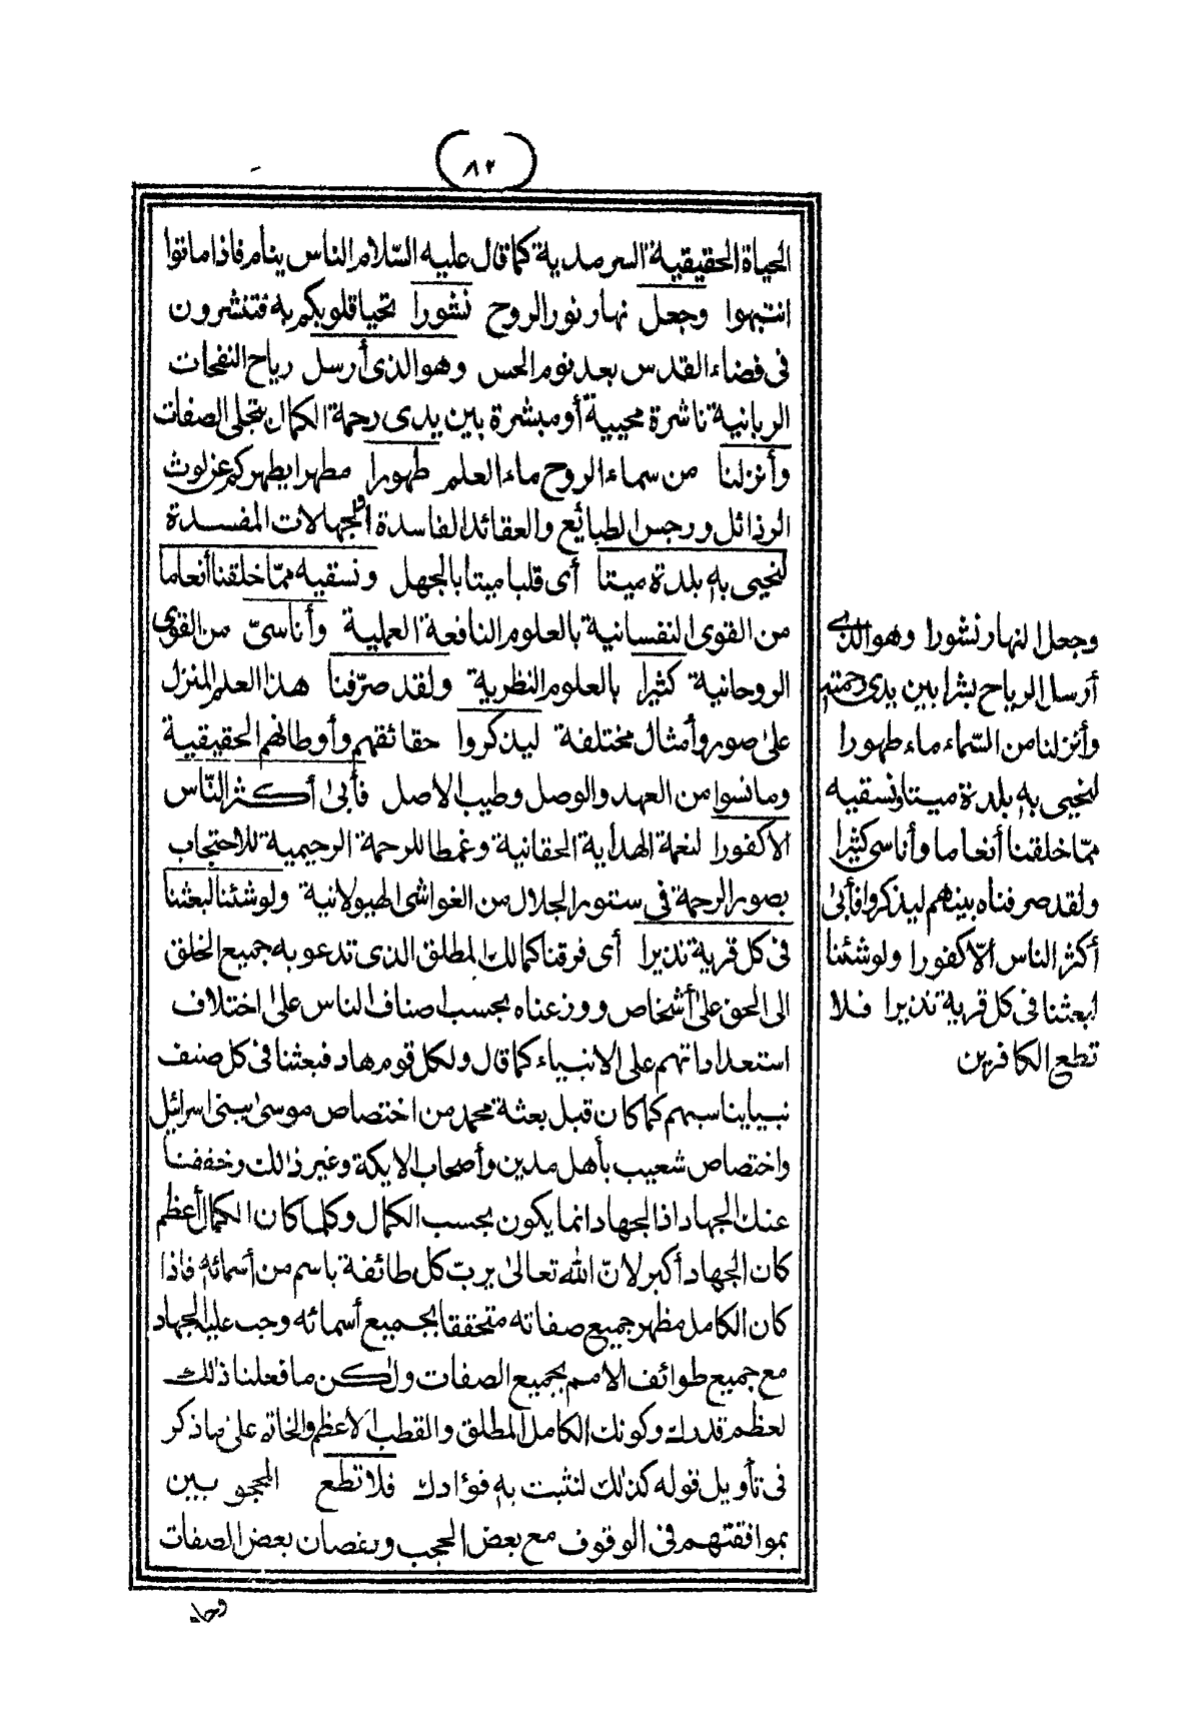 ٨٢
الحياة الحقيقية السرمدية كما قال عليه السّلام الناس ينام فاذا ماتوا
انتبهوا وجعل نهار نور الروح نشورا تحيا قلوبكم به فتنشرون
فى فضاء القدس بعد نوم الحس وهو الذى أرسل رياح النفحات
الربانية ناشرة محيية أو مبشرة بين يدى رحمة الكمال بتجلى الصفات
وأنزلنا من سماء الروح ماء العلم طهورا مطهرا يطهركم عن لوث
الرذائل ورجس الطبائع والعقائد الفاسدة والجهالات المفسدة
لنحيى به بلدة ميتا أى قلبا ميتا بالجهل ونسقيه ممّا خلقنا أنعاما
من القوى النفسانية بالعلوم النافعة العملية وأناسىّ من القوى
الروحانية كثيرا بالعلوم النظرية ولقد صرّفنا هذا العلم المنزل
على صور وأمثال مختلفة ليذكروا حقائقهم وأوطانهم الحقيقية
وما نسوا من العهد والوصل وطيب الاصل فأبى أكثر النّاس
الا كفورا لنعمة الهداية الحقانية وغمطا للرحمة الرحيمية للاحتجاب
بصور الرحمة فى ستور الجلال من الغواشى الهيولانية ولو شئنا لبعثنا
فى كل قرية نذيرا أى فرقنا كمالك المطلق الذى تدعو به جميع الخلق
الى الحق على أشخاص ووزعناه بحسب اصناف الناس على اختلاف
استعداداتهم على الانبياء كما قال ولكل قوم هاد فبعثنا فى كل صنف
نبيا يناسبهم كما كان قبل بعثة محمد من اختصاص موسى ببنى اسرائيل
واختصاص شعيب بأهل مدين وأصحاب الايكة وغير ذلك وخففنا
عنك الجهاد اذ الجهاد انما يكون بحسب الكمال وكلما كان الكمال أعظم
كان الجهاد أكبر لانّ الله تعالى يربّ كل طائفة باسم من أسمائه فاذا
كان الكامل مظهر جميع صفاته متحققا بجميع أسمائه وجب عليه الجهاد
مع جميع طوائف الامم بجميع الصفات ولكن ما فعلنا ذلك
لعظم قدرك وكونك الكامل المطلق والقطب الاعظم والخاتم على ما ذكر
فى تأويل قوله كذلك لنثبت به فؤادك فلا تطع المحجوبين
بموافقتهم فى الوقوف مع بعض الحجب ونقصان بعض الصفات
وجعل النهار نشورا وهو الذى
أرسل الرياح بشرا بين يدى رحمته
وأنزلنا من السّماء ماء طهورا
لنحيى به بلدة ميتا ونسقيه
ممّا خلقنا أنعاما وأناسى كثيرا
ولقد صرفناه بينهم ليذكروا فأبى
أكثر الناس الّا كفورا ولو شئنا
لبعثنا فى كل قرية نذيرا فلا
تطع الكافرين